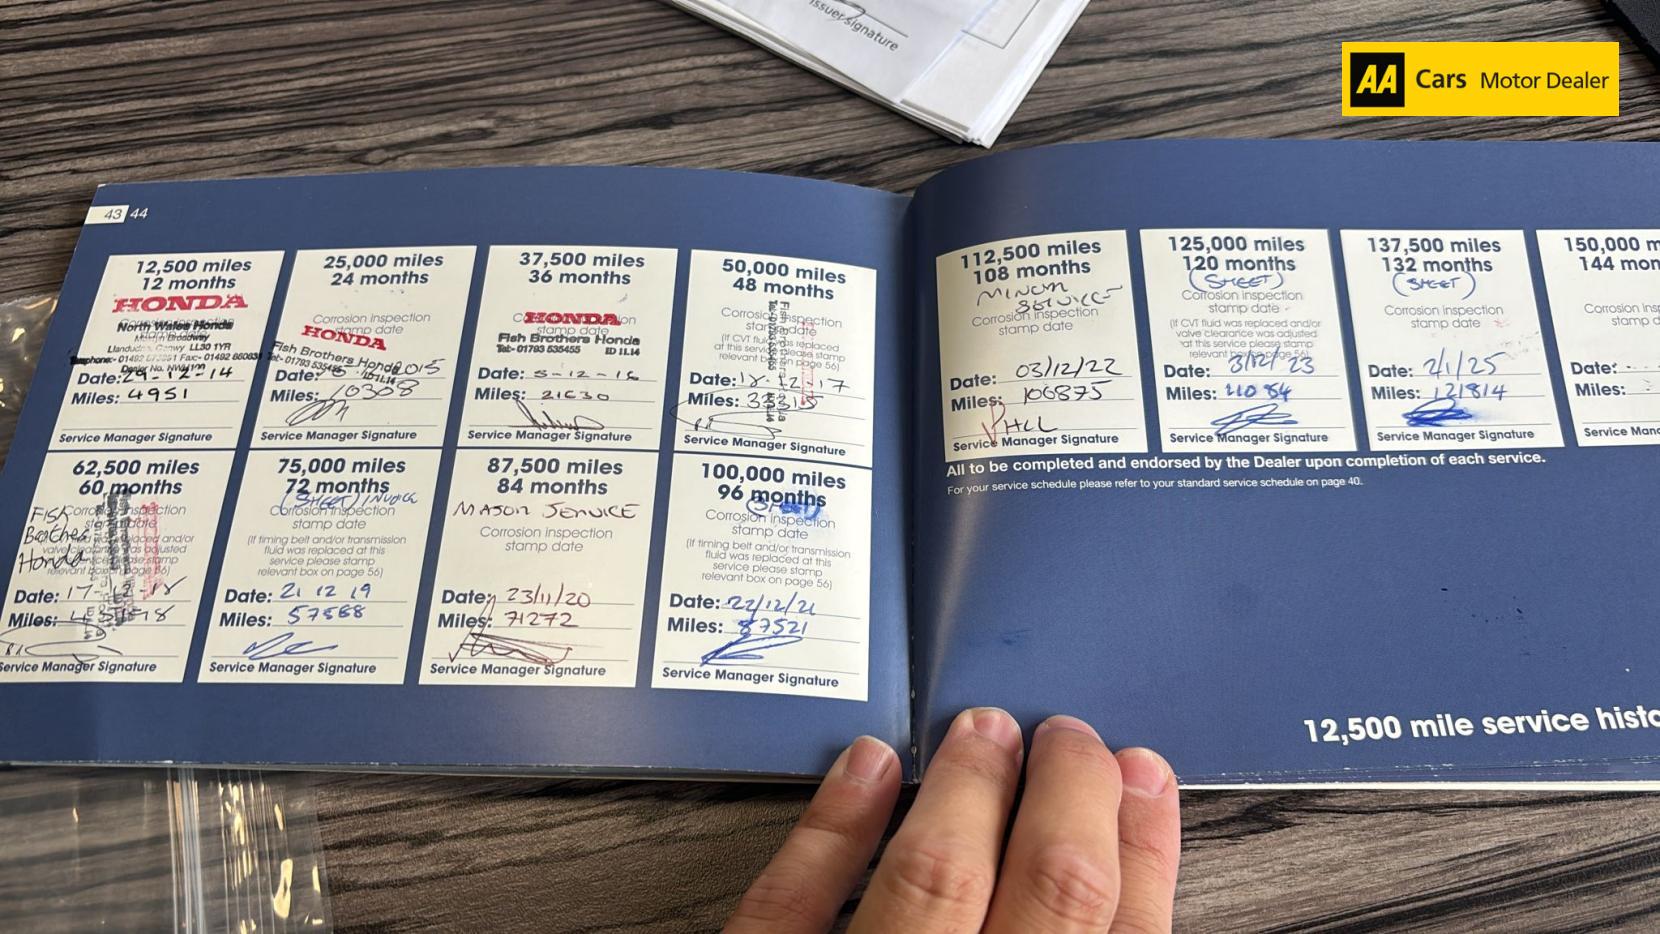 issuer signature
AA Cars Motor Dealer
43 44
12,500 miles
12 months
HONDA
North Wales Honda
Llandudno, Conwy LL30 1YR
Date: 29-12-14
Miles: 4951
Service Manager Signature
25,000 miles
24 months
Corrosion inspection
stamp date
HONDA
Fish Brothers Honda
Tel:-01793 535455
ED 11.14
Date: 2015
Miles: 10308
Service Manager Signature
37,500 miles
36 months
Corrosion inspection
stamp date
HONDA
Fish Brothers Honda
Tel:- 01793 535455 ED 11.14
Date: 5-12-16
Miles: 21630
Service Manager Signature
50,000 miles
48 months
Corrosion inspection
stamp date
(If CVT fluid was replaced
at this service please stamp
relevant box on page 56)
Date: 12-17
Miles:
Service Manager Signature
62,500 miles
60 months
Fish
Brothers
Honda
Corrosion inspection
stamp date
Date: 17-12-18
Miles:
Service Manager Signature
75,000 miles
72 months
(SHEET) INVOICE
Corrosion inspection
stamp date
(If timing belt and/or transmission
fluid was replaced at this
service please stamp
relevant box on page 56)
Date: 21 12 19
Miles: 57568
Service Manager Signature
87,500 miles
84 months
MAJOR SERVICE
Corrosion inspection
stamp date
Date: 23/11/20
Miles: 71272
Service Manager Signature
100,000 miles
96 months
Corrosion inspection
stamp date
(If timing belt and/or transmission
fluid was replaced at this
service please stamp
relevant box on page 56)
Date: 22/12/21
Miles: 87521
Service Manager Signature
112,500 miles
108 months
MINOR
SERVICE
Corrosion inspection
stamp date
Date: 03/12/22
Miles: 106875
Service Manager Signature
125,000 miles
120 months
(SHEET)
Corrosion inspection
stamp date
(If CVT fluid was replaced and/or
valve clearance was adjusted
at this service please stamp
relevant box on page 56)
Date: 3/12/23
Miles:
Service Manager Signature
137,500 miles
132 months
(SHEET)
Corrosion inspection
stamp date
Date: 2/1/25
Miles: 121814
Service Manager Signature
150,000 m
144 mon
Corrosion ins
stamp d
Date:
Miles:
Service Mana
All to be completed and endorsed by the Dealer upon completion of each service.
For your service schedule please refer to your standard service schedule on page 40.
12,500 mile service histo